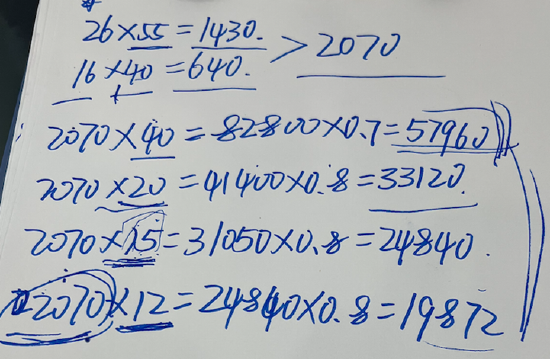 26×55=1430.
>2070
16×40=640.
2070×40=82800×0.7=57960
2070×20=41400×0.8=33120.
2070×15=31050×0.8=24840.
2070×12=24840×0.8=19872